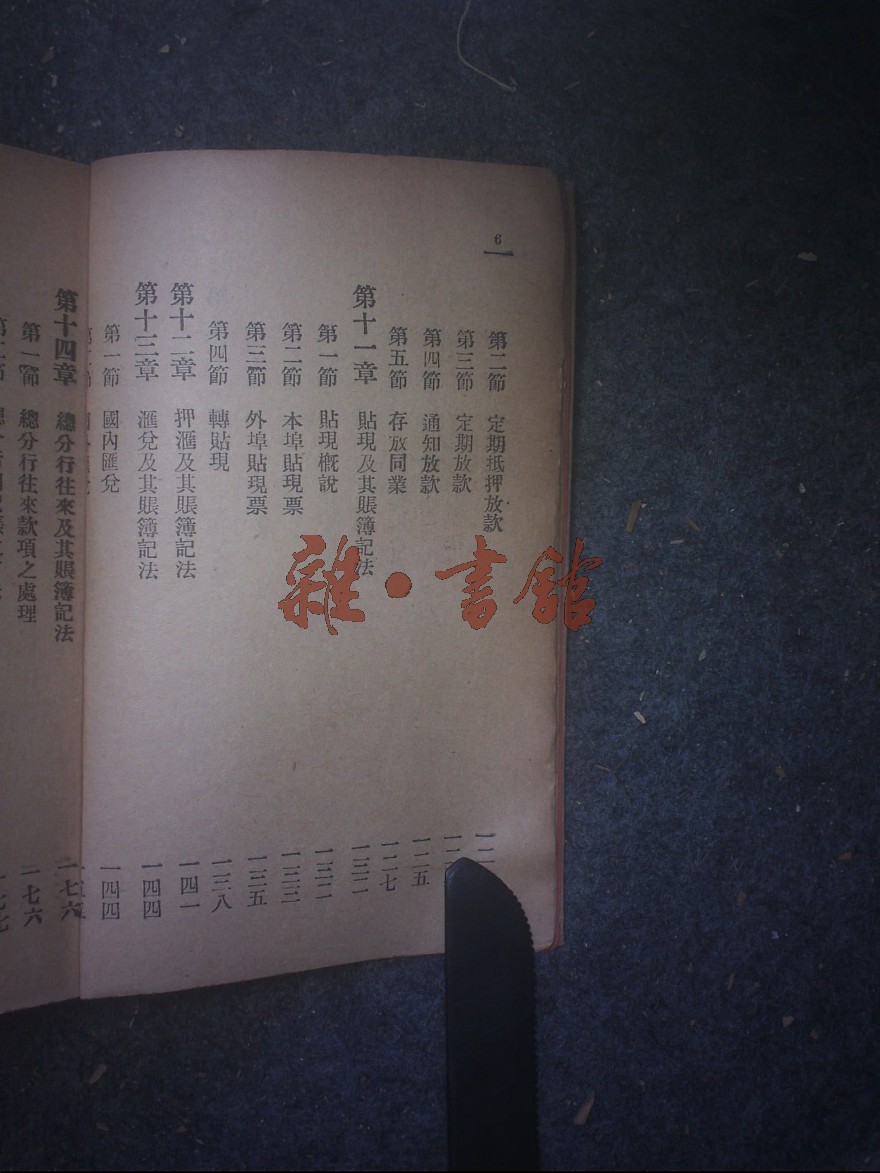 6
第二節　定期抵押放款　一二
第三節　定期放款　一二
第四節　通知放款　一二五
第五節　存放同業　一二七
第十一章　貼現及其賬簿記法　一三二
第一節　貼現概說　一三二
第二節　本埠貼現票　一三三
第三節　外埠貼現票　一三五
第四節　轉貼現　一三八
第十二章　押滙及其賬簿記法　一四一
第十三章　滙兌及其賬簿記法　一四四
第一節　國內匯兌　一四四
第十四章　總分行往來及其賬簿記法　一七六
第一節　總分行往來款項之處理　一七六
雜·書館